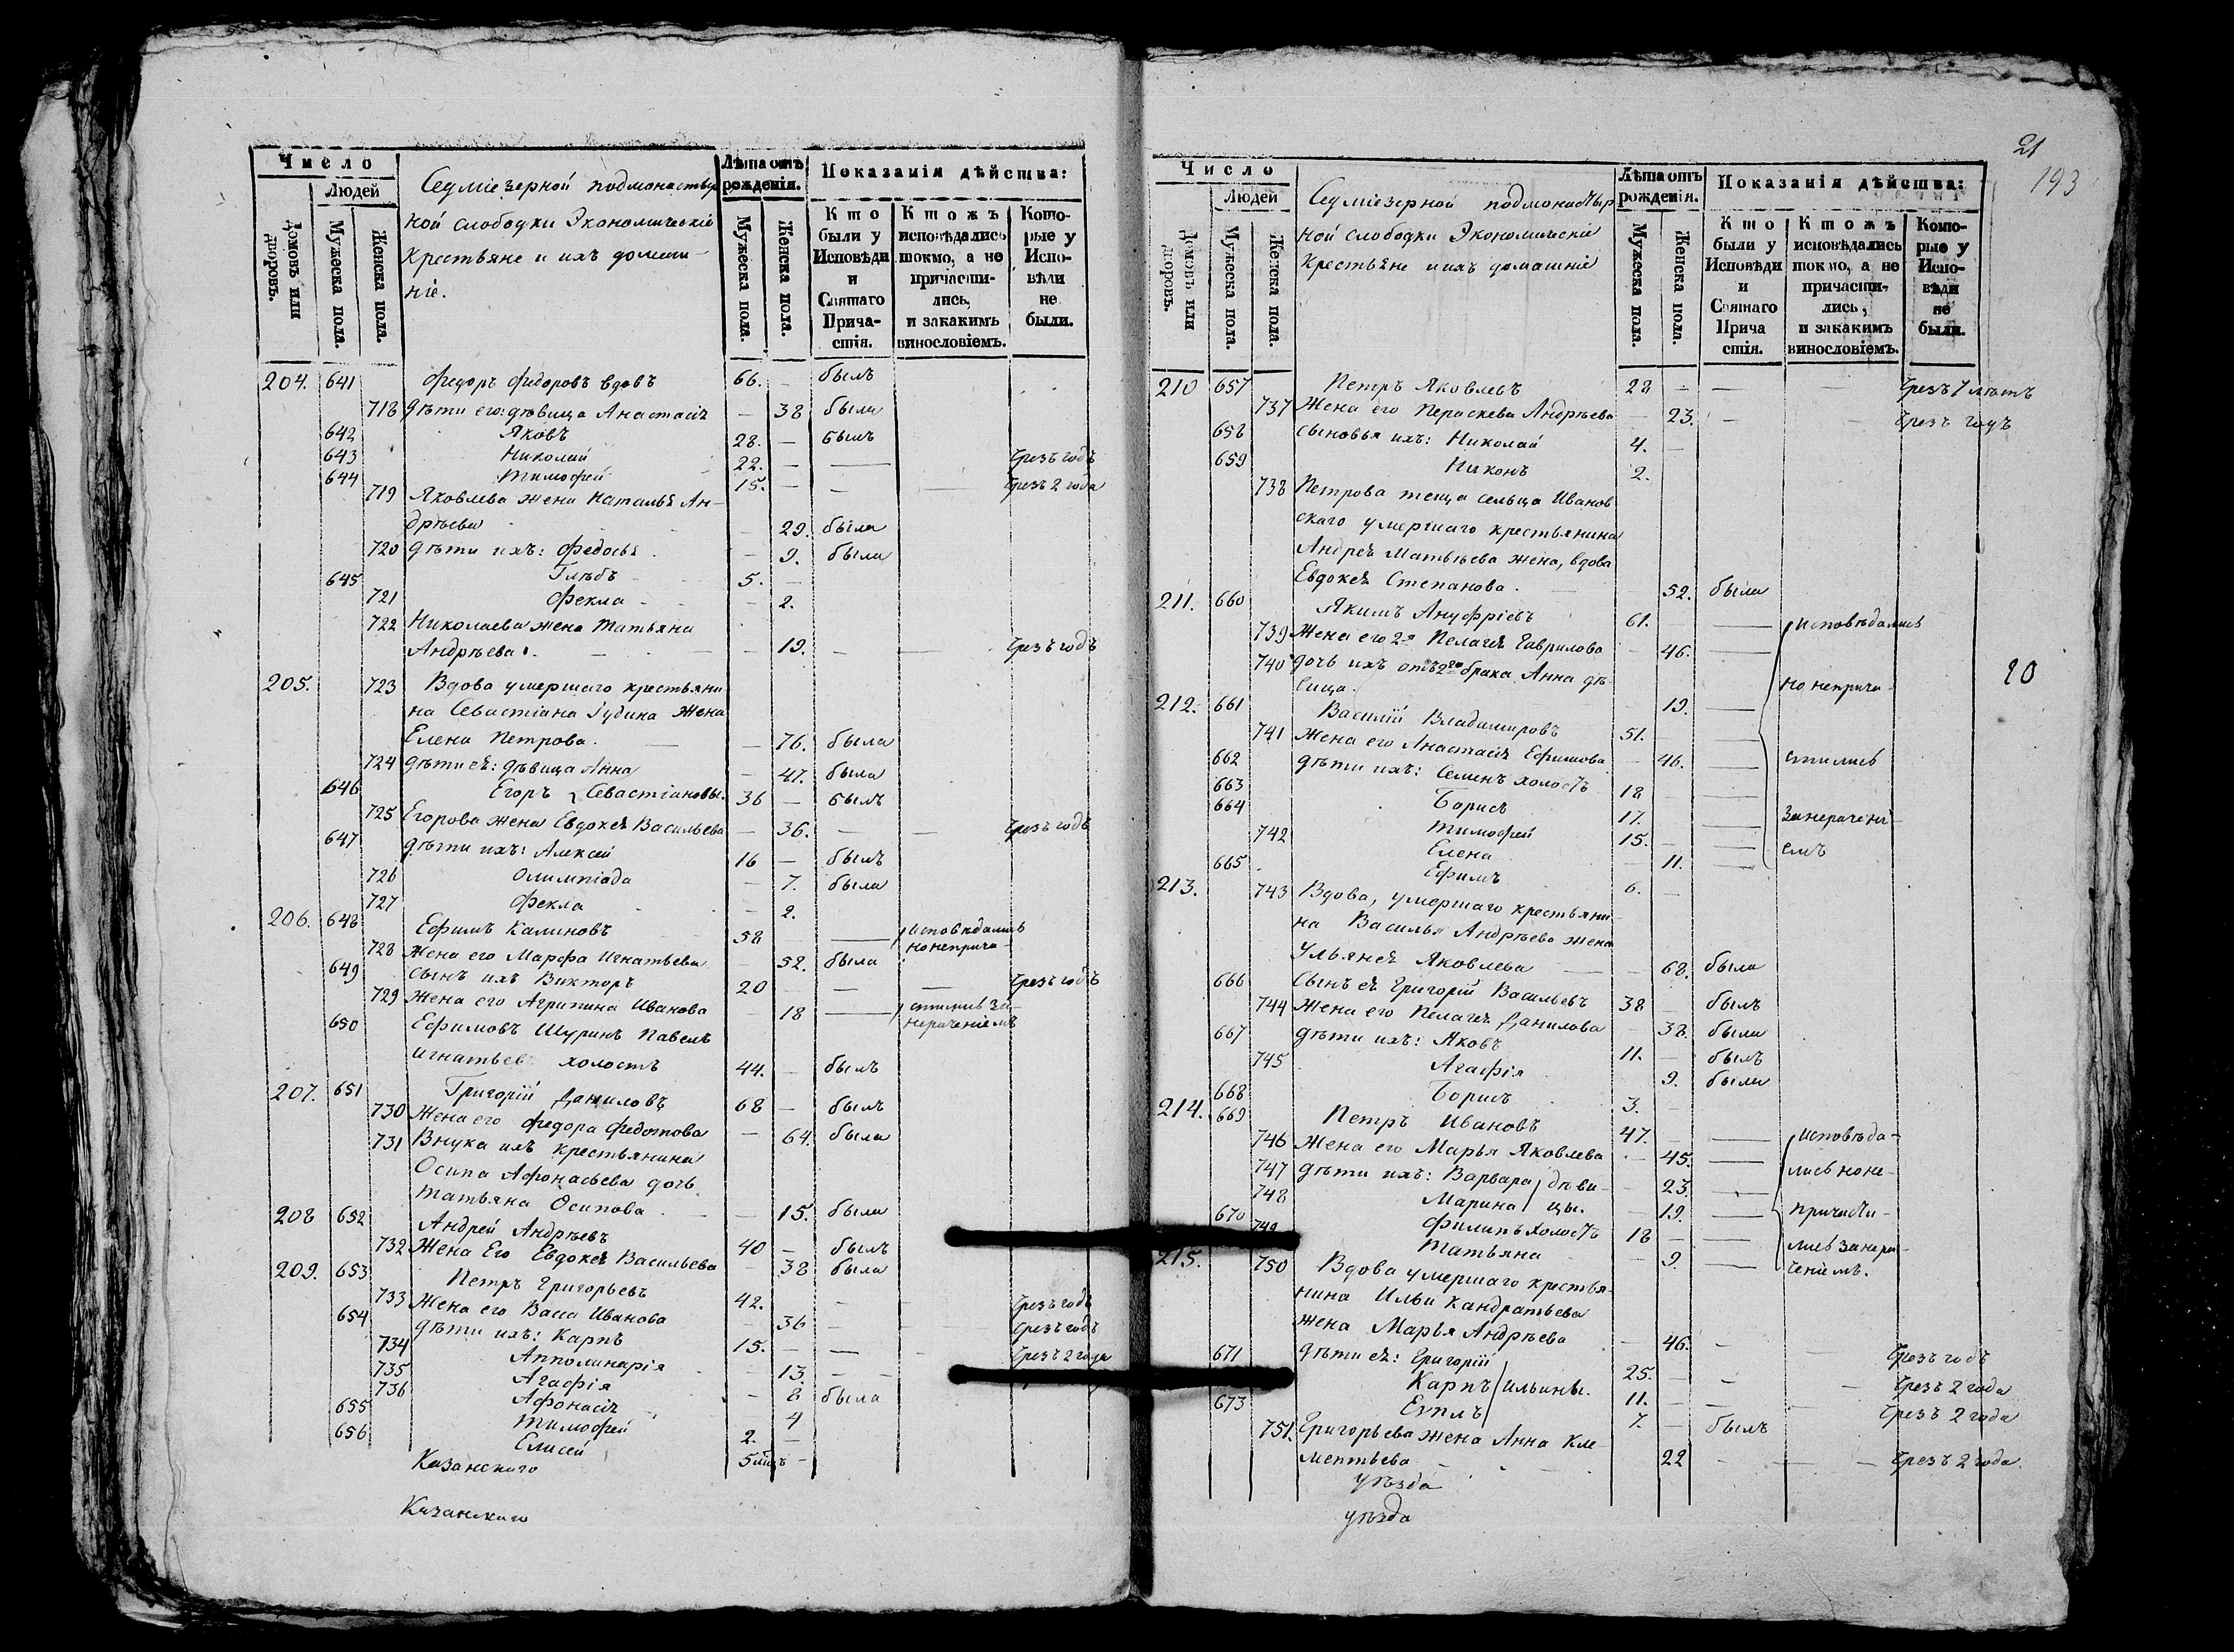 Число
Людей
Домовъ или дворовъ.
Мужеска пола.
Женска пола.
Седміезерной подмонастыр
ной слободки Экономическіе
Крестьяне и ихъ домаш-
ніе.
Лѣта отъ рожденія.
Мужеска пола.
Женска пола.
Показанія дѣйства:
Кто были у Исповѣди и Святаго Прича-стія.
Ктожъ исповѣдались токмо, а не причасти-лись, и закакимъ винословіемъ.
Кото-рые у Испо-вѣди не были.
204. 641 Федоръ Федоровъ вдовъ 66. — былъ
718 дѣти его: дѣвица Анастасіѧ — 38 была
642 Яковъ 28. — былъ
643 Николай 22. — — Чрезъ годъ
644 Тимофей 15. — — — Чрезъ 2 года
719 Яковлева жена Натальѧ Ан-
дрѣева — 29. была
720 дѣти ихъ: Федосьѧ — 9. была
645 Глѣбъ 5. —
721 Фекла — 2.
722 Николаева жена Татьяна
Андрѣева. — 19. — — Чрезъ годъ
205. 723 Вдова умершаго крестьяни-
на Севастіана Іудина жена
Елена Петрова. — 76. была
724 дѣти еѧ: дѣвица Анна — 47. была
646 Егоръ Севастіановы. 36 — былъ
725 Егорова жена Евдокеѧ Васильева — 36. — — Чрезъ годъ
647 дѣти ихъ: Алексей 16 — былъ
726 Олимпіада — 7. была
727 Фекла — 2.
206. 648 Ефимъ Калиновъ 58 — — исповѣдались
но неприча-
728 Жена его Марфа Игнатьева — 52. была
649 Сынъ ихъ Викторъ 20 — — — Чрезъ годъ
729 Жена его Агрипина Иванова — 18 — стились за
нераченіемъ
650 Ефимовъ Шуринъ Павелъ
Игнатьев холостъ 44. — былъ
207. 651 Григорій Даниловъ 68 — былъ
730 Жена его Федора Федотова — 64. была
731 Внука ихъ крестьянина
Осипа Афонасьева дочь
Татьяна Осипова — 15. была
208 652 Андрей Андрѣевъ 40 — былъ
732 Жена Его Евдокеѧ Васильева — 38 была
209. 653 Петръ Григорьевъ 42. — Чрезъ годъ
733 Жена его Васа Иванова — 36 — Чрезъ годъ
654 дѣти ихъ: Карпъ 15. — — — Чрезъ 2 года
734 Апполинарія — 13. — —
735 Агафія — 8 была
736 Афонасіѧ — 4
655 Тимофей 2. —
656 Елисей 5 мцъ —
Казанскаго
Казанскаго
21
193
Число
Людей
Домовъ или дворовъ.
Мужеска пола.
Женска пола.
Седміезерной подмонастыр
ной слободки Экономическіе
Крестьѧне и ихъ домашніе
Лѣта отъ рожденія.
Мужеска пола.
Женска пола.
Показанія дѣйства:
Кто были у Исповѣди и Святаго Прича стія.
Ктожъ исповѣдались токмо, а не причасти-лись, и закакимъ винословіемъ.
Кото-рые у Испо-вѣди не были.
210 657 Петръ Яковлевъ 28 — — — Чрезъ 7 лѣтъ
737 Жена его Пераскева Андрѣева — 23. — — Чрезъ годъ
658 сыновья ихъ: Николай 4. —
659 Никонъ 2.
738 Петрова теща сельца Иванов
скаго умершаго крестьянина
Андреѧ Матвѣева жена, вдова
Евдокеѧ Степанова. — 52. была
211. 660 Якимъ Ануфріевъ 61. — — исповѣдались
739 Жена его 2я Пелагеѧ Гаврилова — 46. —
740 дочь ихъ отъ 2го брака Анна дѣ-
вица. 19. — но неприча-
212. 661 Василій Владимировъ 51. — —
741 Жена его Анастасіѧ Ефимова — 46. — стились
662 дѣти ихъ: Семенъ холостъ 18 —
663 Борисъ 17. — занерачені-
664 Тимофей 15. — —
742 Елена — 11. — емъ
665 Ефимъ 6. —
213. 743 Вдова, умершаго крестьяни-
на Василья Андрѣева жена
Ульянеѧ Яковлева — 68. была
666 Сынъ еѧ Григорій Васильевъ 38 былъ
744 Жена его Пелагеѧ Данилова — 38. была
667 дѣти ихъ: Яковъ 11. — былъ
745 Агафія 9. была
668 Борисъ 3. —
214. 669 Петръ Ивановъ 47. — — исповѣда-
746 Жена его Марья Яковлева — 45. — лись но не-
747 дѣти ихъ: Варвара дѣви- — 23. —
748 Марина цы. — 19. — причасти-
670 Филипъ холостъ 18 — —
749 Татьяна — 9. — лись занера-
ченіемъ.
215. 750 Вдова умершаго крестья-
нина Ильи Кандратьева
жена Марья Андрѣева — 46. — Чрезъ годъ
671 дѣти еѧ: Григорій 25. — — — Чрезъ 2 года
Карпъ Ильины. 11. — — — Чрезъ 2 года
673 Еѵплъ 7. — былъ
751. Григорьева жена Анна Кле-
ментьева 22 — — — Чрезъ 2 года.
уѣзда
уѣзда
20